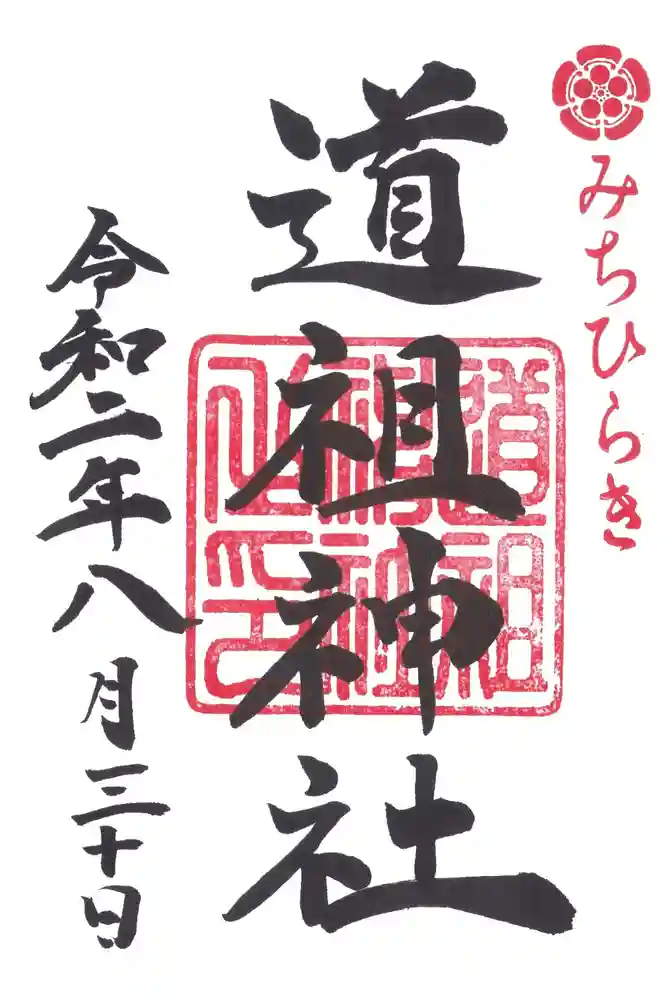 みちひらき
道祖神社
道祖神社之印
令和二年八月三十日